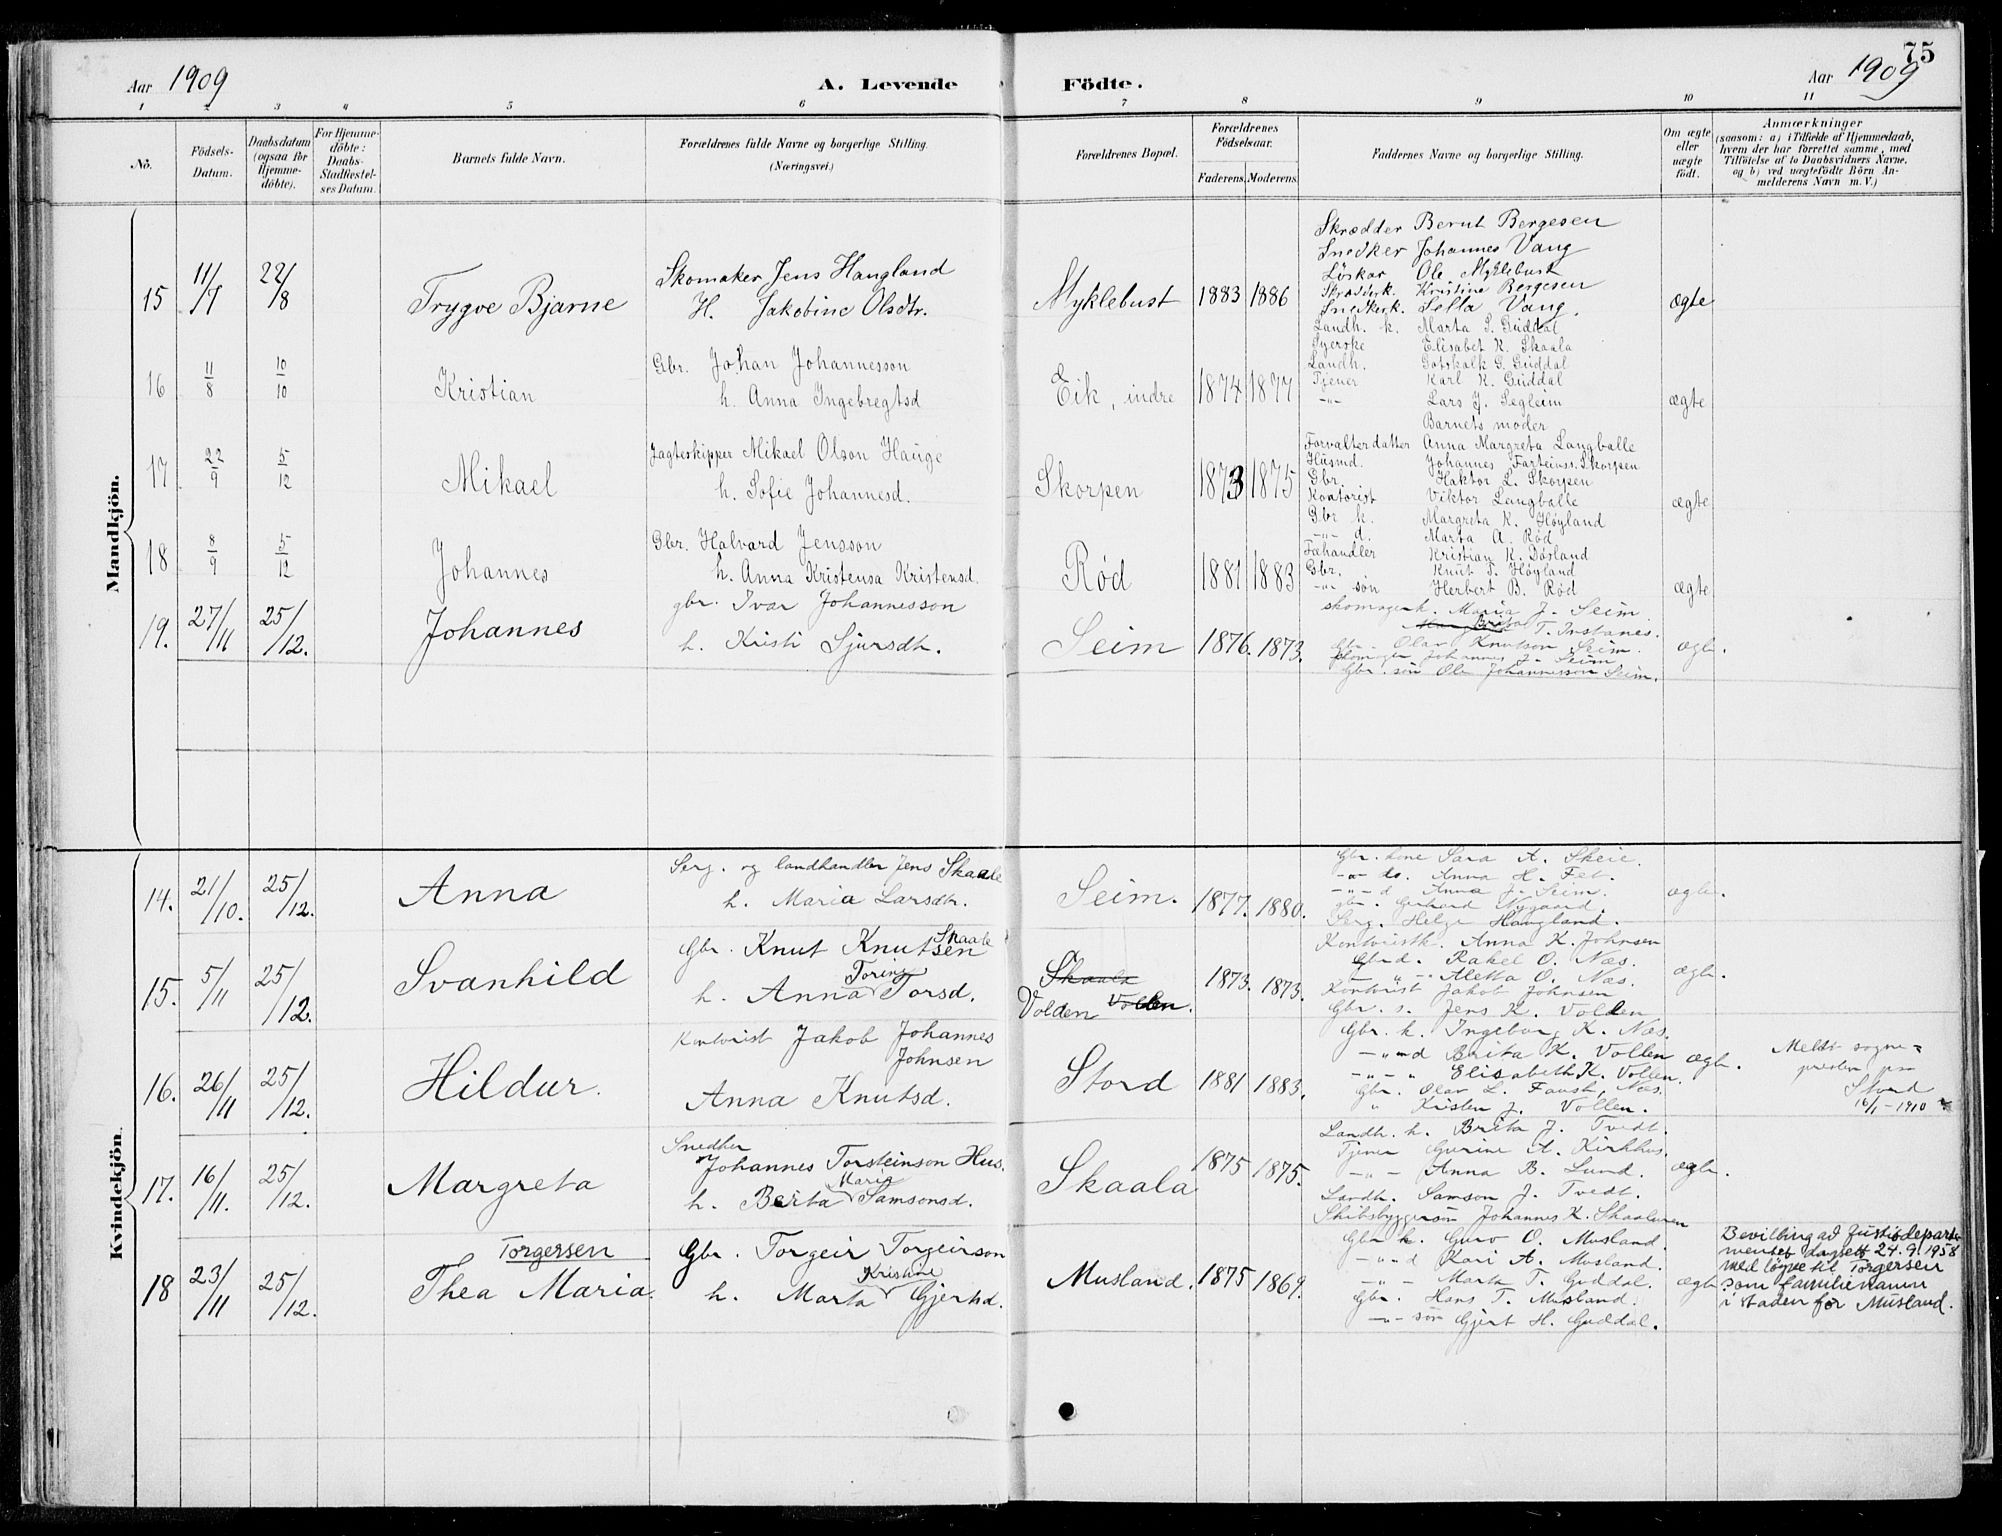 75
Aar 1909
A. Levende Födte.
Aar 1909
1 2 3 4 5 6 7 8 9 10 11
No.
Födsels-Datum.
Daabsdatum (ogsaa for Hjemme-döbte).
For Hjemme-döbte: Daabs-Stadfæstel-ses Datum.
Barnets fulde Navn.
Forældrenes fulde Navne og borgerlige Stilling.
(Næringsvei.)
Forældrenes Bopæl.
Forældrenes Födselsaar.
Faderens. Moderens.
Faddernes Navne og borgerlige Stilling.
Om ægte eller uægte födt.
Anmærkninger
(saasom: a) i Tilfælde af Hjemmedaab,
hvem der har forrettet samme, med
Tilföielse af to Daabsvidners Navne,
og b) ved uægtefödte Börn An-
melderens Navn m. V.)
Mandkjön.
15 11/7 22/8 Trygve Bjarne
Skomaker Jens Haugland
H. Jakobine Olsdtr.
Myklebust 1883 1886
Skrædder Bernt Bergesen
Snedker Johannes Vang
Löskar Ole Myklebust
Skrædderk. Kristine Bergesen
Snedkerk. Sella Vang.
ægte
16 11/8 10/10 Kristian
Gbr. Johan Johannesson
h. Anna Ingebregtsd
Eik, indre 1874 1877
Landh. k. Marta S. Guddal
Syerske Elisabet K. Skaala
Landh. Gotskalk G. Guddal
Tjener Karl K. Guddal
-"- Lars J. Segleim
Barnets moder
ægte
17 22/9 5/12 Mikael
Jagteskipper Mikael Olson Hauge
h. Sofie Johannesd.
Skorpen 1873 1875
Forvalterdatter Anna Margreta Langballe
Husmd. Johannes Farteinss. Skorpen
Gbr. Haktor L. Skorpen
Kontorist Viktor Langballe
ægte
18 8/9 5/12 Johannes
Gbr. Halvard Jensson
h. Anna Kristensa Kristensd.
Rød 1881 1883
Gbr k. Margreta K. Høyland
-"- d. Marta A. Rød
Fæhandler Kristian K. Døsland
Gbr. Knut T. Høyland
-"- søn Herbert B. Rød
ægte
19. 27/11 25/12. Johannes
gbr. Ivar Johannesson
h. Kristi Sjursdt.
Seim 1876. 1873.
skomagerk. Maria J. Seim
Brita T. Instanes.
Gbr. Olav Knutson Seim.
skomager Johannes J. Seim
Gbr. søn Ole Johannesson Seim.
ægte.
Kvindekjön.
14. 21/10. 25/12. Anna
Serg. og landhandler Jens Skaale
h. Maria Larsdtr.
Seim. 1877. 1880.
Gbr. kone Sara A. Skeie.
-"- do. Anna H. Fet.
-"- d Anna J. Seim.
gbr. Gerhard Nygaard.
Serg. Helge Haugland.
ægte.
15. 5/11 25/12. Svanhild
Gbr. Knut Knutsen Skaale
h. Anna Torine Torsd.
Skaala
Volden Vollen. 1873. 1873.
Kontoristk. Anna K. Johnsen
Gbrd. Rakel O. Næs.
-"- Aletta O. Næs.
Kontorist Jakob Johnsen
Gbr. s. Jens K. Volden
ægte.
16. 26/11 25/12. Hildur.
Kontorist Jakob Johannes Johnsen
Anna Knutsd.
Stord 1881 1883.
Gbr. k. Ingeborg K. Næs.
-"- d Brita K. Vollen
-"- " Elisabeth K. Vollen.
Gbr. Olav L. Faust, Næs.
" Kristen J. Vollen.
ægte.
Meldt sogne-
presten paa
Stord
16/1-1910
17. 16/11. 25/12. Margreta
Snedker
Johannes Torsteinson Hus.
h. Berta Maria Samsonsd.
Skaala 1875 1875.
Landh. k. Brita J. Tvedt.
Tjener Gurine A. Kirkhus.
-"- Anna B. Lund.
Landh. Samson J. Tvedt.
Skibsbyggersøn Johannes K. Skaaluren
ægte.
18 23/11 25/12. Torgersen
Thea Maria.
Gbr. Torgeir Torgeirson
h. Marta Kristine Gjertsd.
Musland. 1875 1869.
Gbr k. Guro O. Musland.
-"- d Kari A. Musland.
-"- Marta T. Guddal.
Gbr. Hans T. Musland.
-"- søn Gjert H. Guddal.
ægte.
Bevilling ad Justisdeparte-
mentet dagsett 24.9.1958
med løyve til Torgersen
som familienamn
i staden for Musland.